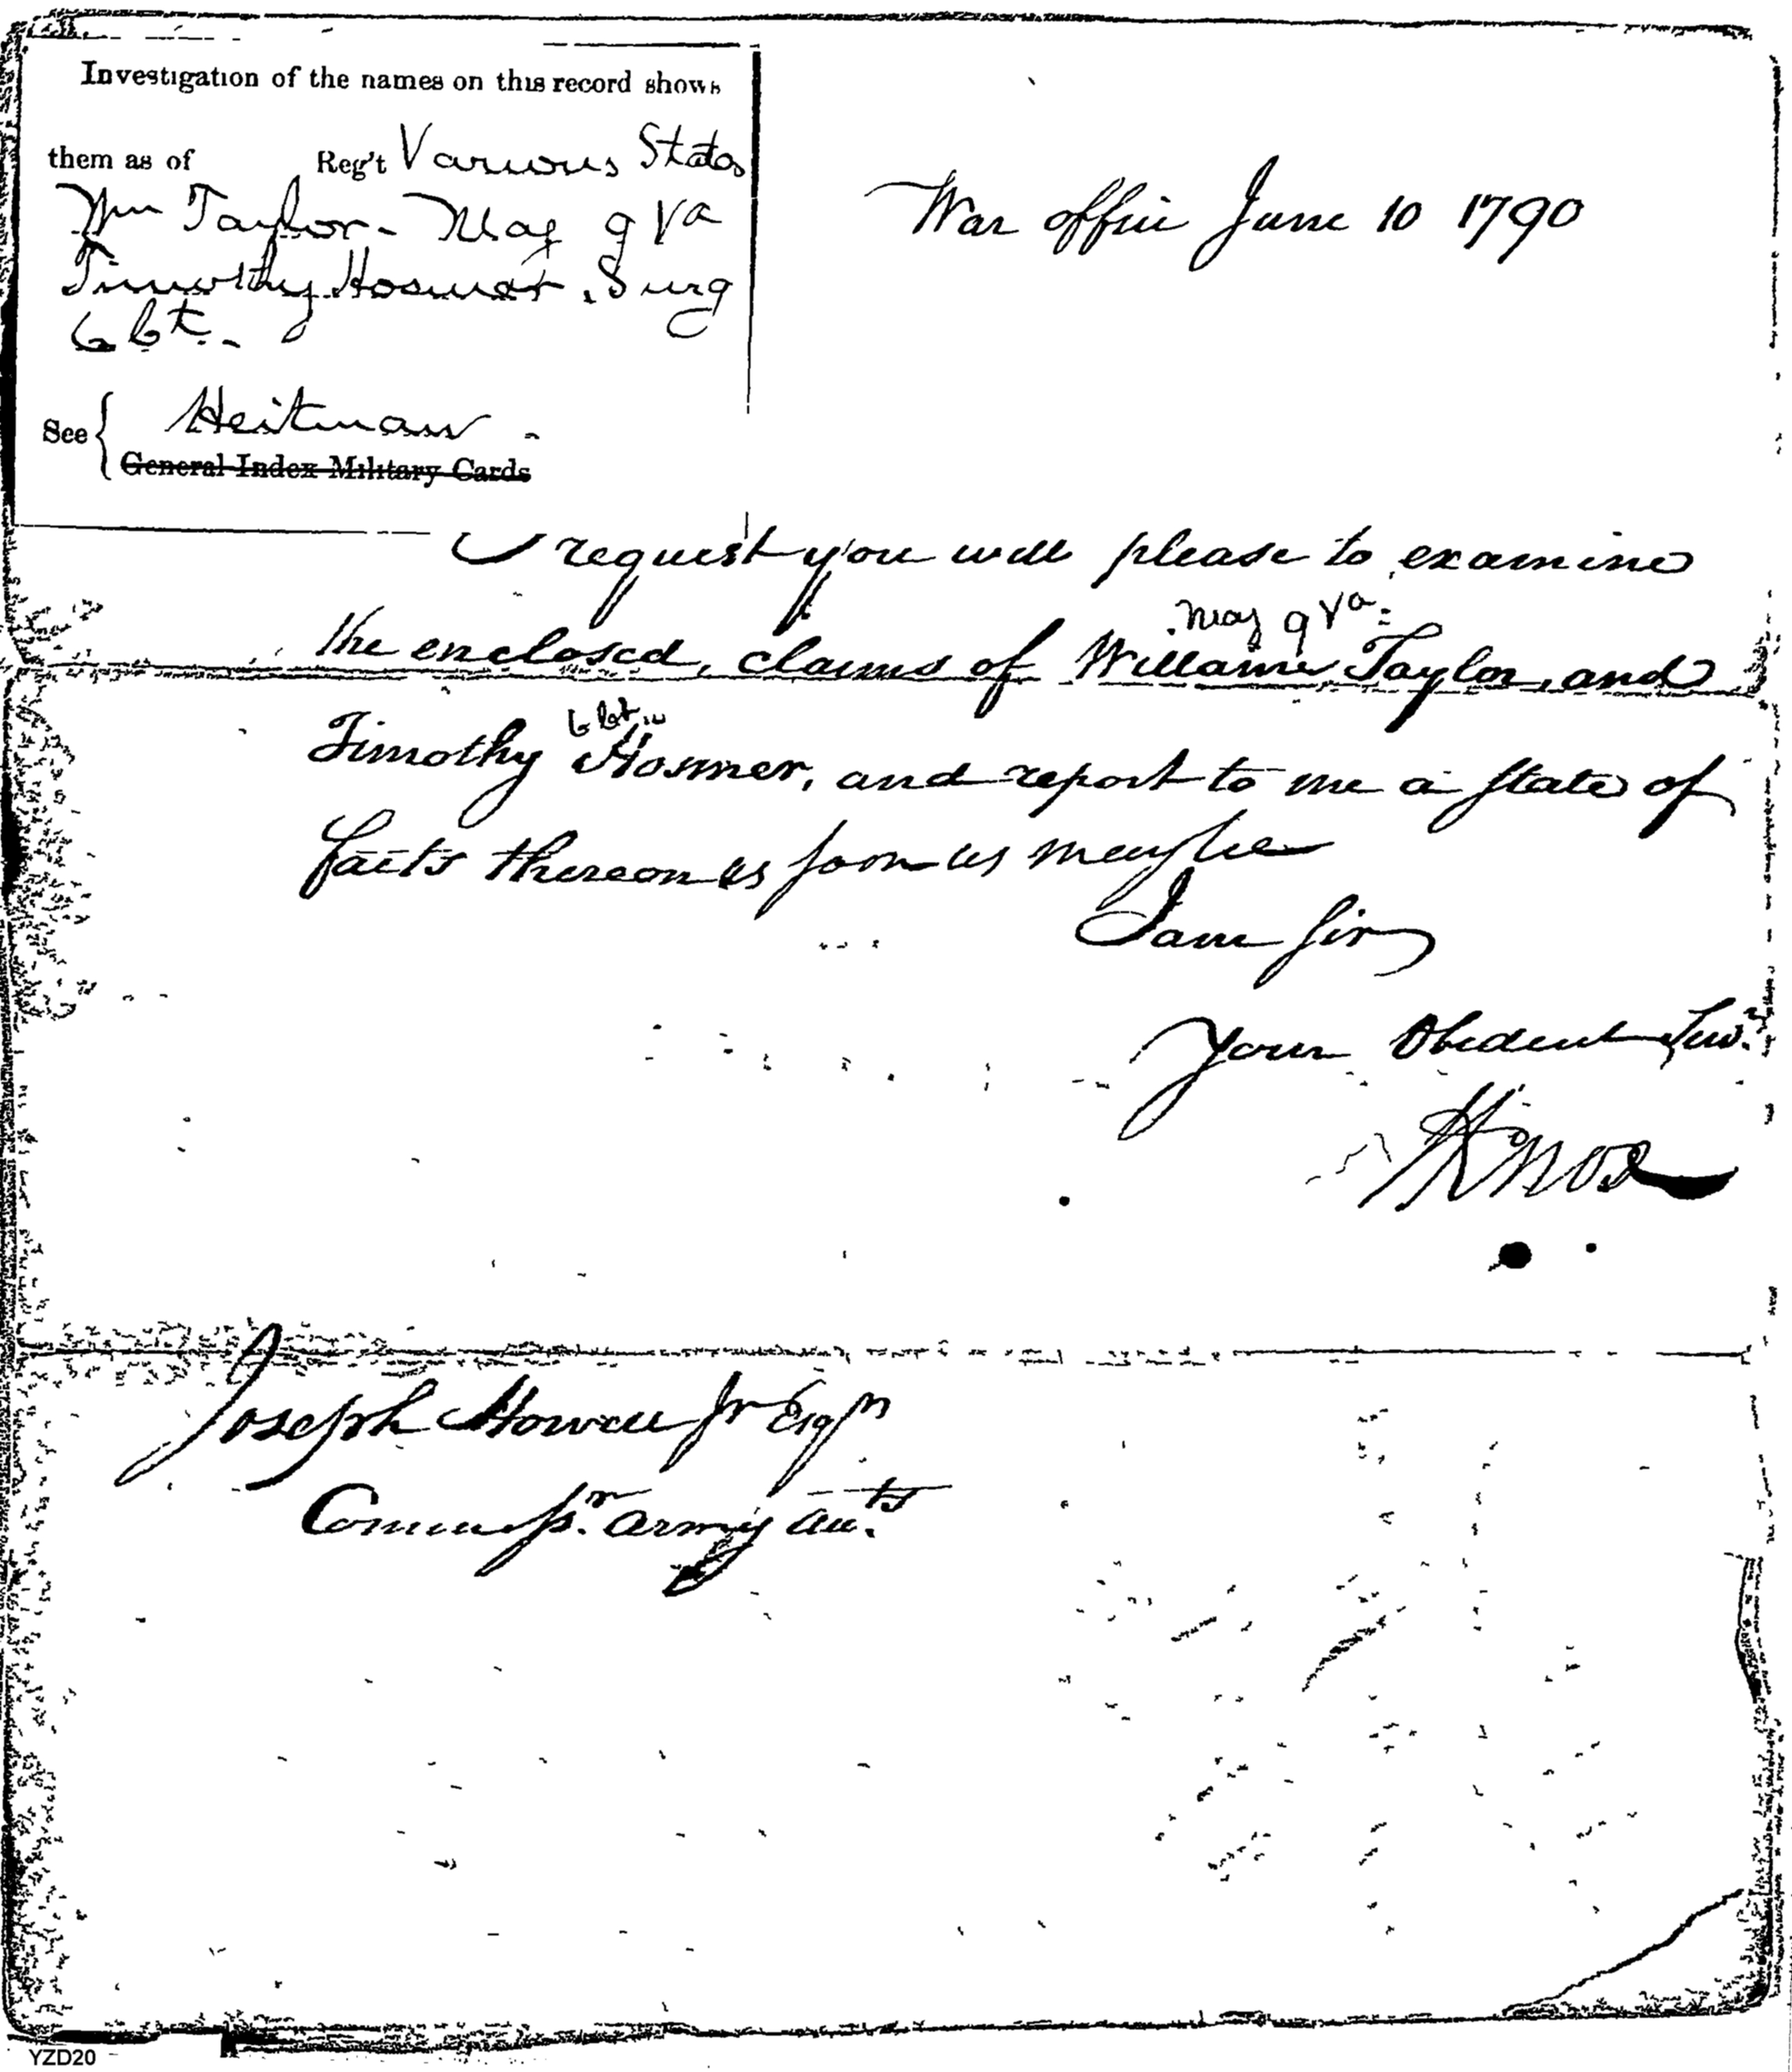 Investigation of the names on this record shows
them as of Reg't Various States
Wm Taylor - Maj 9 Va
Timothy Hosmer. Surg
6 Ct. -
See { Heitman -
General Index Military Cards
War office June 10 1790
I request you will please to examine
Maj 9 Va
the enclosed, claims of William Taylor, and
6 Ct
Timothy Hosmer, and report to me a state of
facts thereon as soon as may be
I am sir
Your Obedient Servt.
HKnox
Joseph Howell Jr Esqr
Commissr. Army Accts.
YZD20